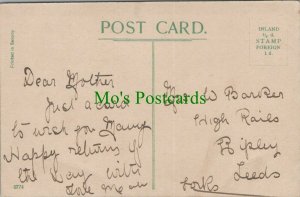 POST CARD.
INLAND
½ d.
STAMP
FOREIGN
1 d.
Printed in Saxony
Dear Mother
Just a card
to wish you Many
Happy returns of
the Day with
love
Mrs W Barker
High Rails
Ripley
Leeds
Yorks
Mo's Postcards